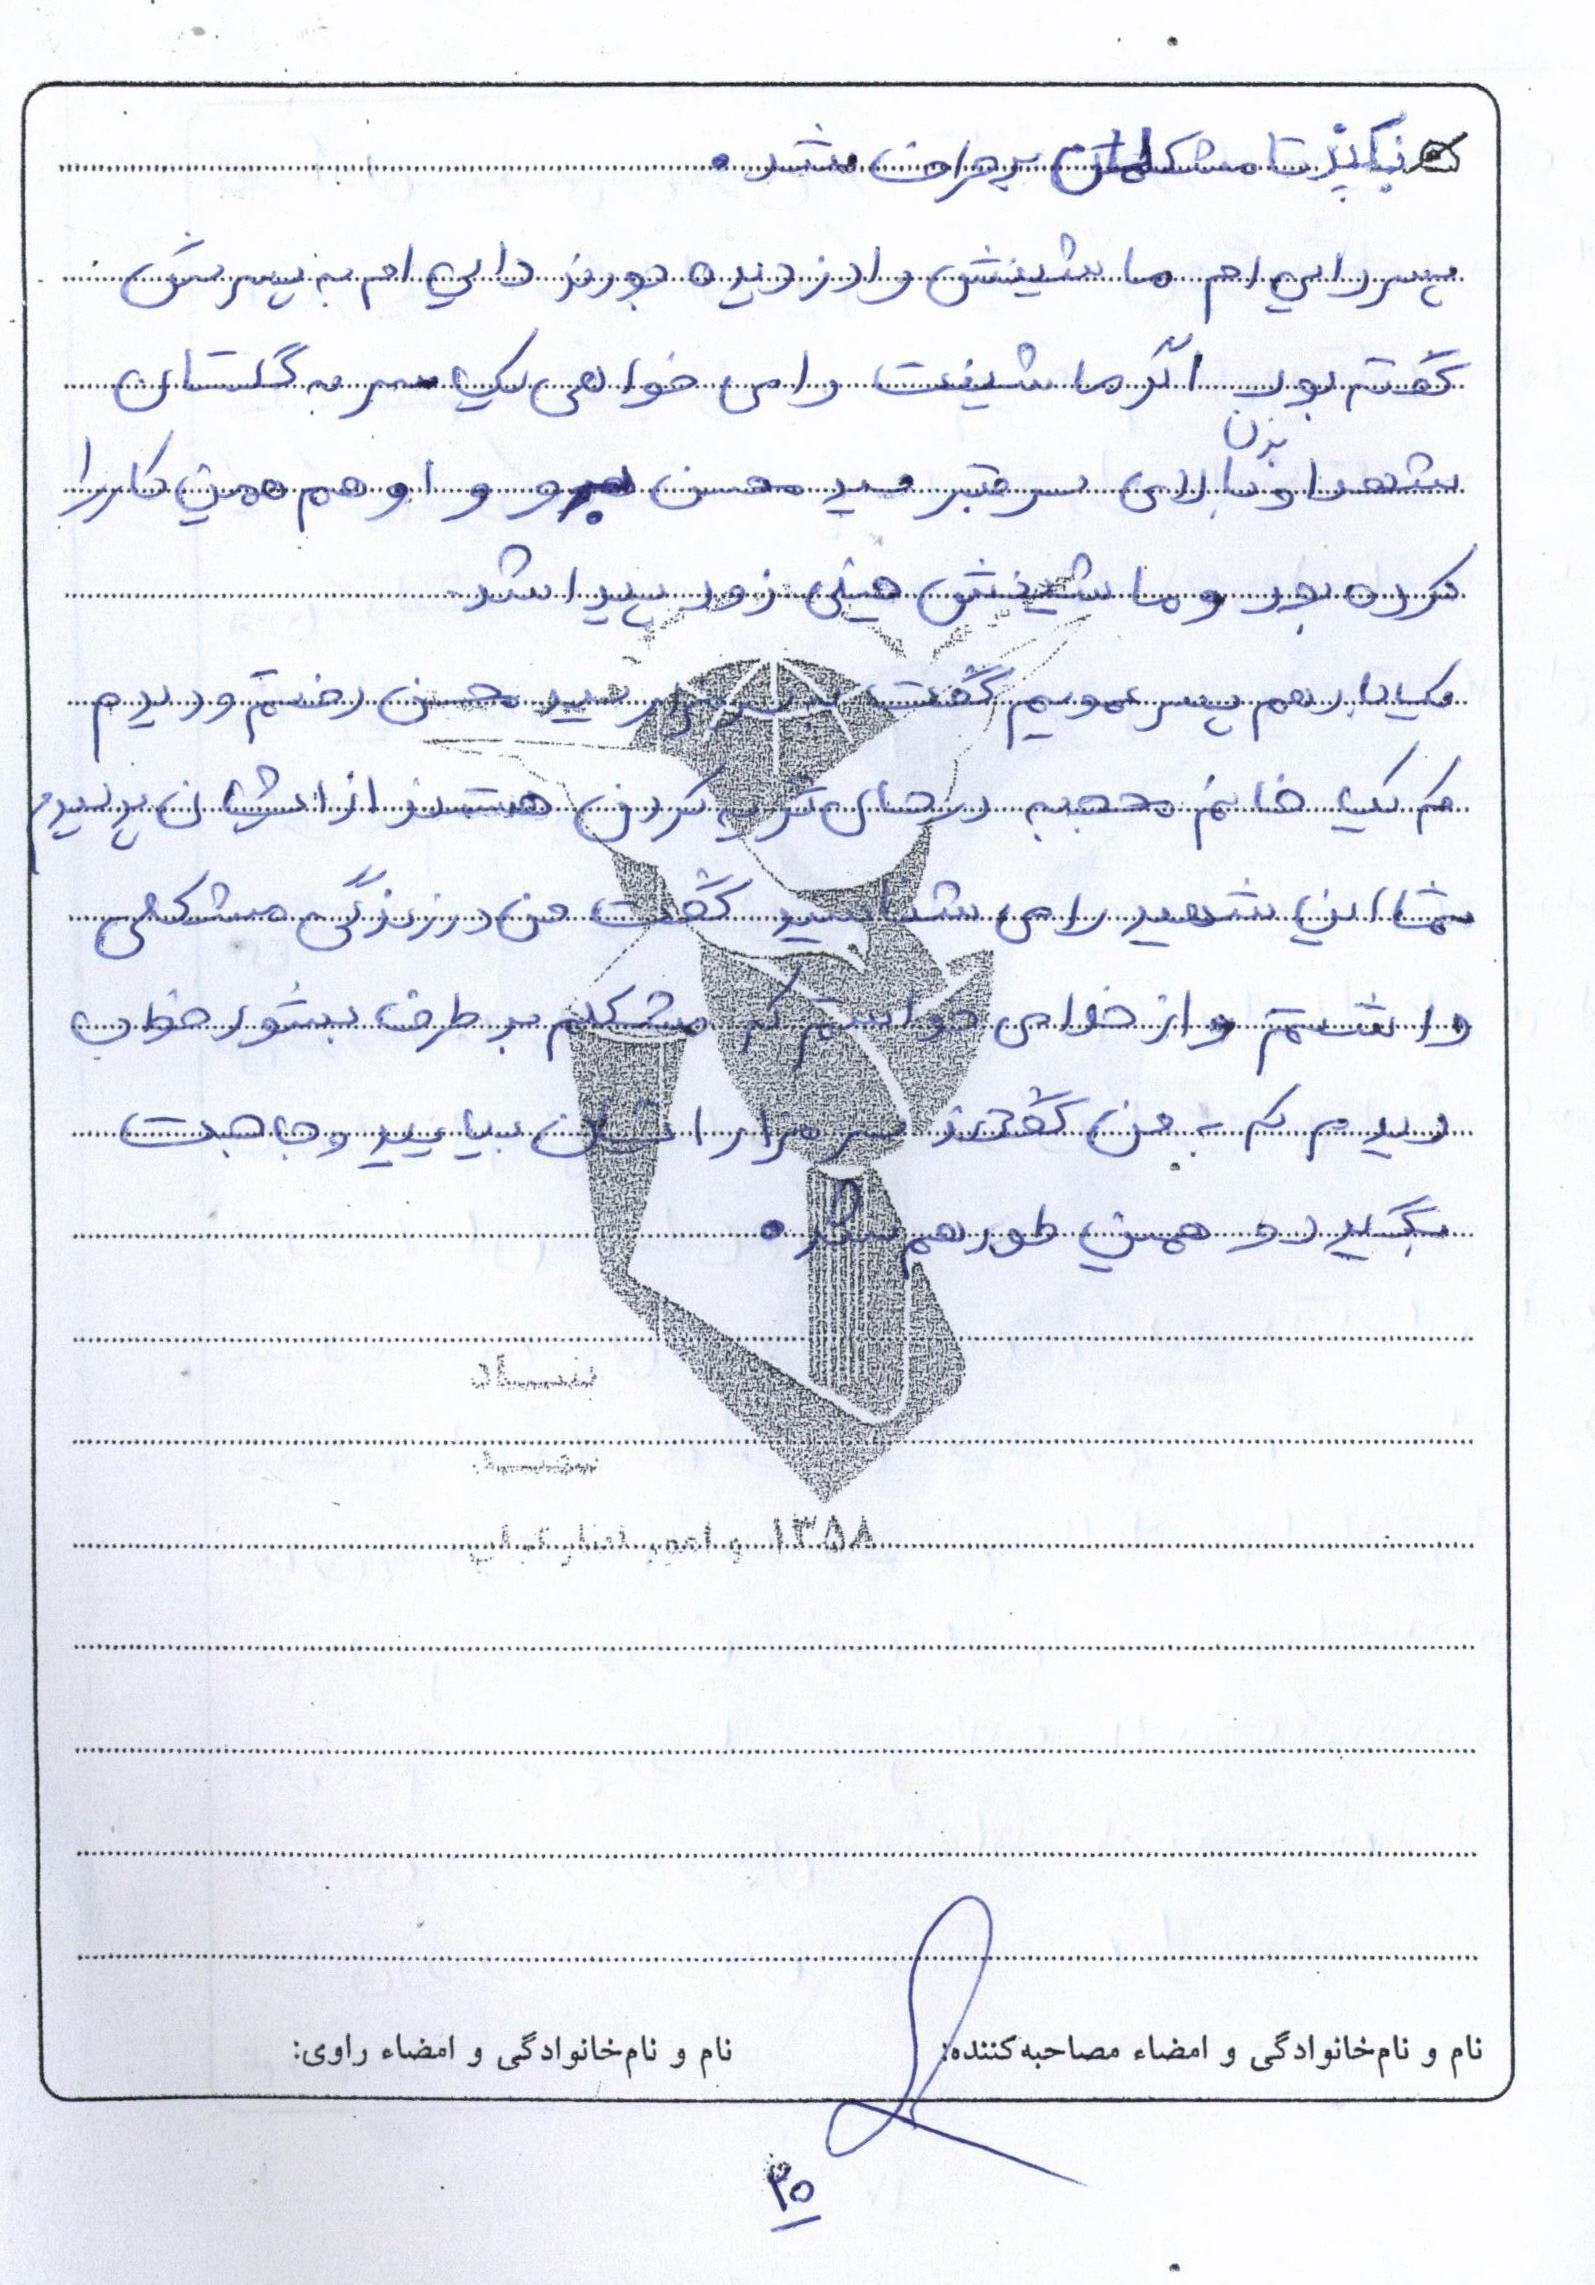 بگیرند تا مشکلش برطرف شد.
پسر دایی ام ماشینش را دزدیده بودند دایی ام به پسرش
گفته بود اگر ماشینت را می خواهی یک سر به گلستان
بزن
شهدا و بالای سر قبر سید محسن برو و او هم همین کار را
کرده بود و ماشینش خیلی زود پیدا شد.
یکبار هم پسر عمویم گفت به سر مزار سید محسن رفتم و دیدم
که یک خانم محجبه در حال گریه کردن هستند از ایشان پرسیدم
شما این شهید را می شناسید گفت من در زندگی مشکلی
داشتم و از خدا می خواستم که مشکلم بر طرف بشود خواب
دیدم که به من گفتند سر مزار ایشان بیایید و حاجت
بگیرید و همین طور هم شد.
بنیاد
شهید
و امور ایثارگران ۱۳۵۸
نام و نام‌خانوادگی و امضاء مصاحبه‌کننده:
نام و نام‌خانوادگی و امضاء راوی:
۳۵